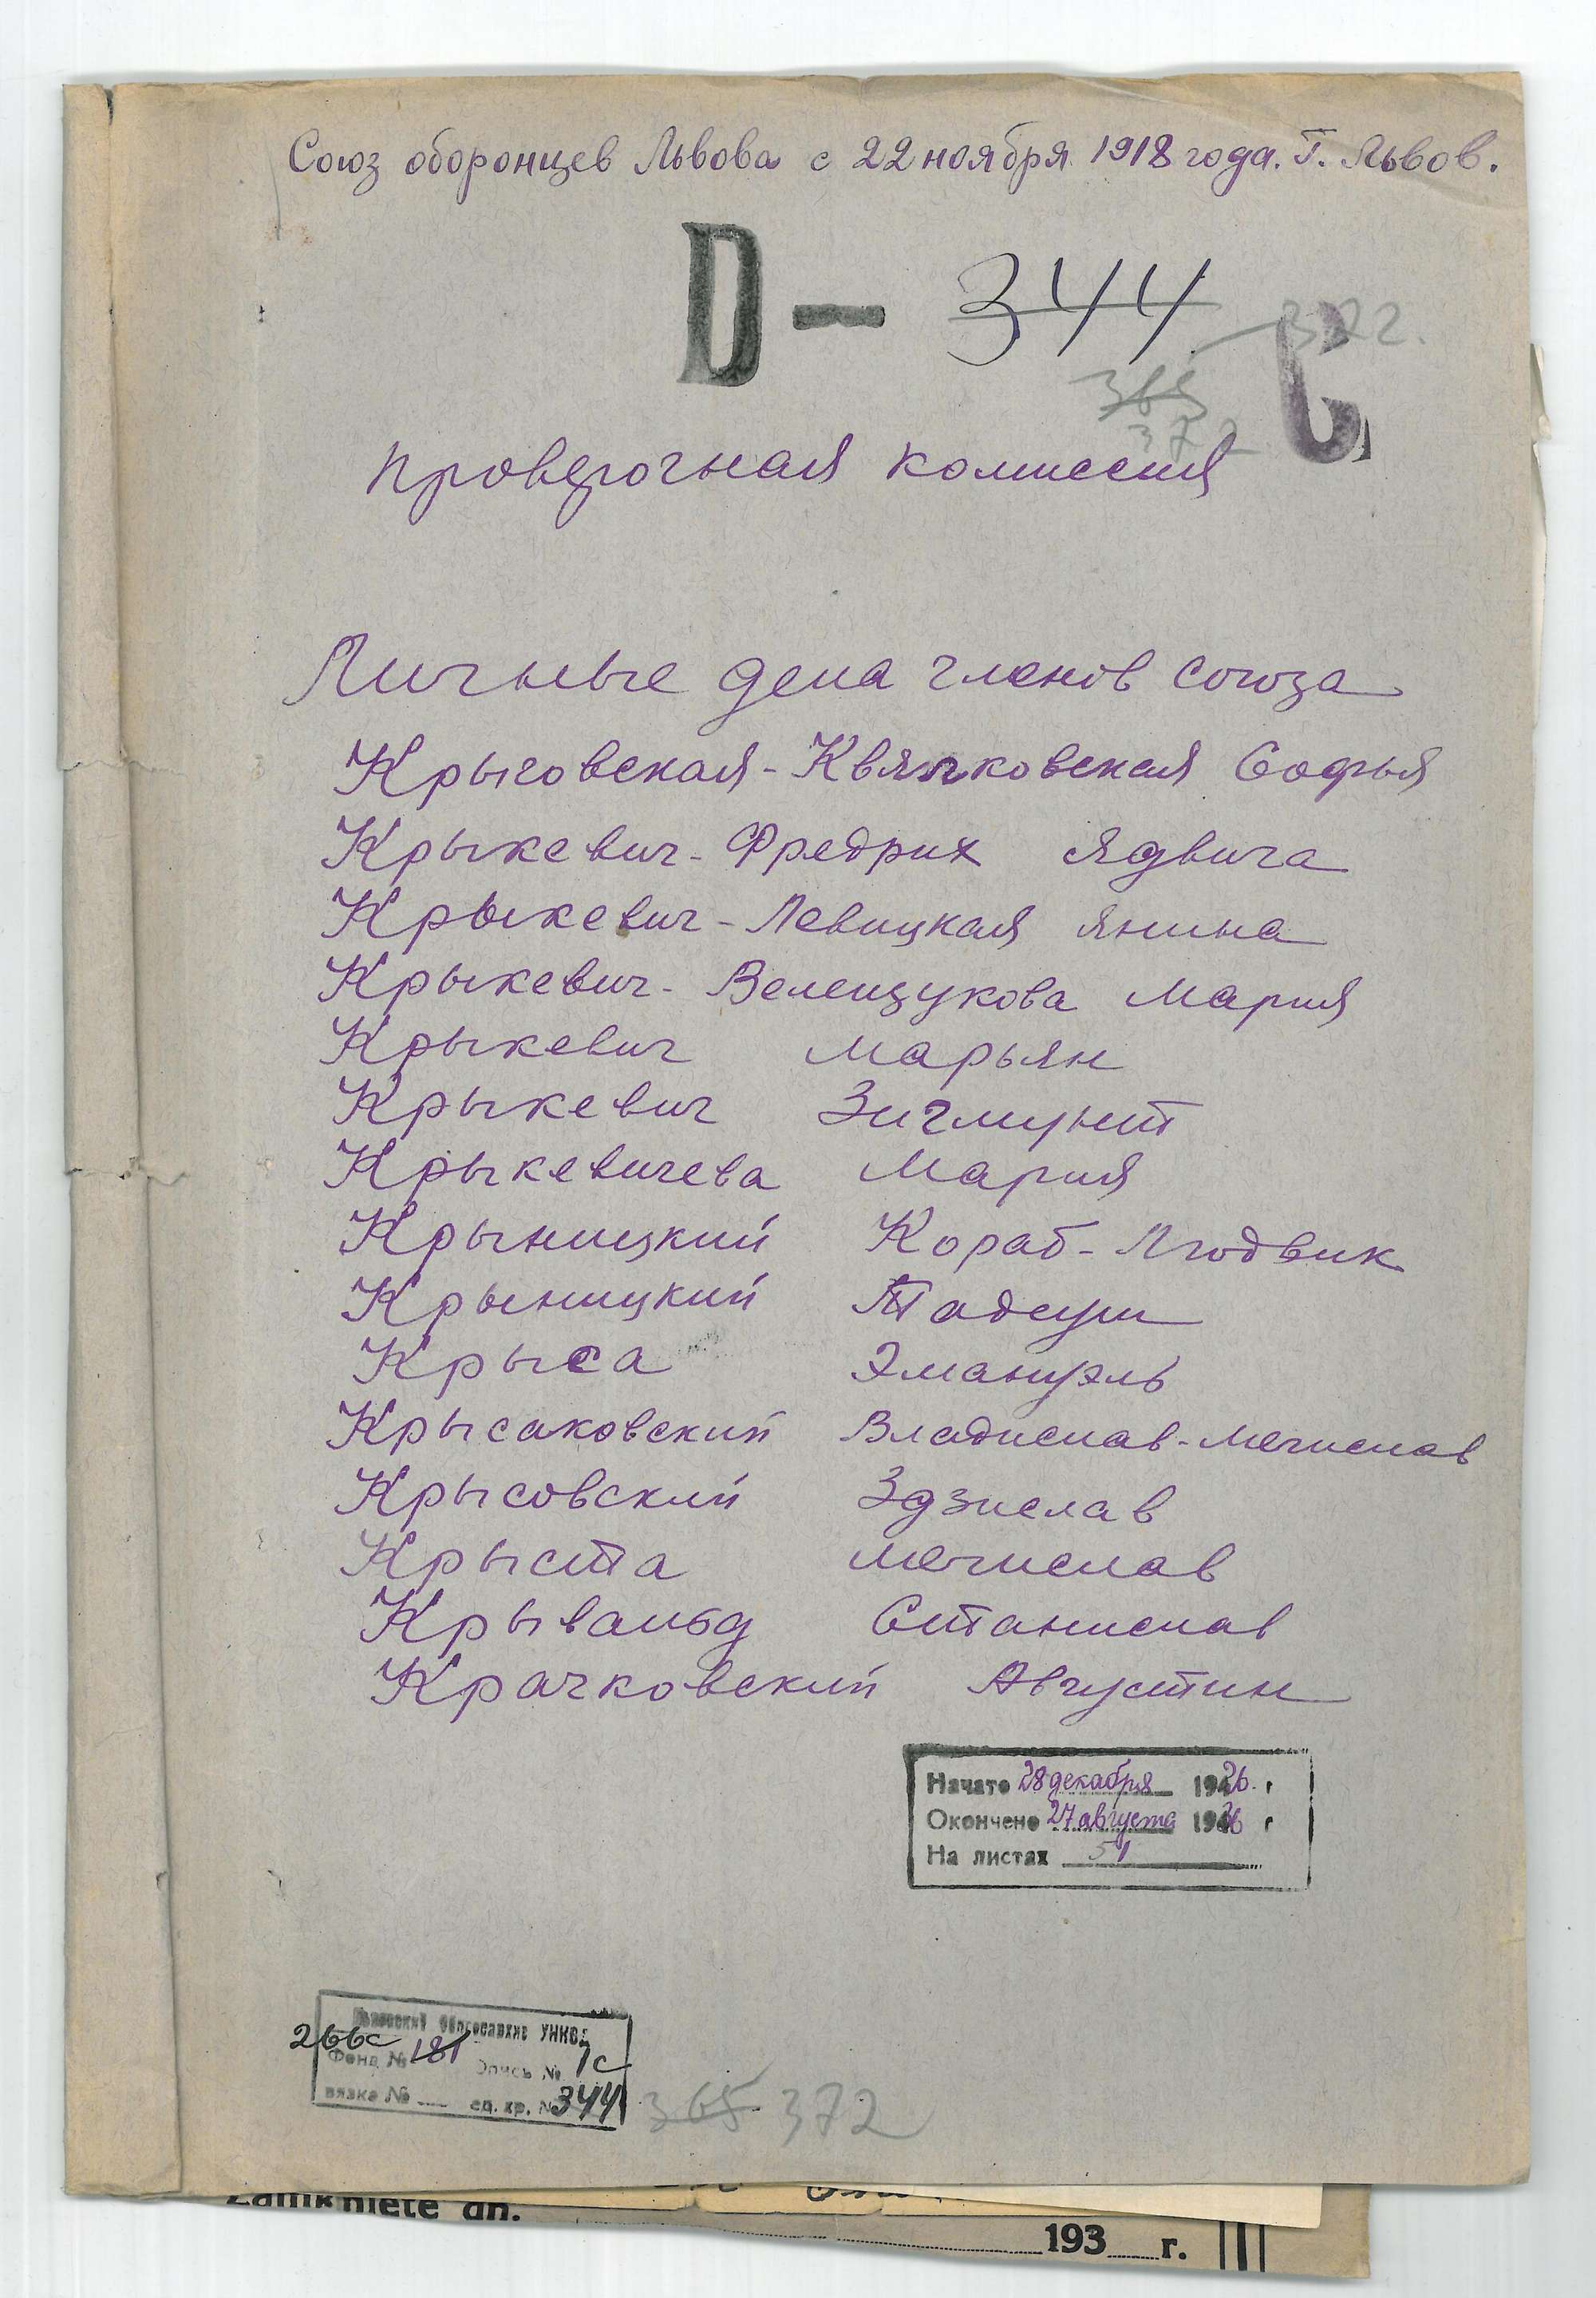 Союз оборонцев Львова с 22 ноября 1918 года. Г. Львов.
D — 344
372.
365
372
С
Проверочная комиссия
Личные дела членов союза
Крыговская - Квятковская Софья
Крыкевич - Фредрих Ядвига
Крыкевич - Левицкая Янина
Крыкевич - Велещукова Мария
Крыкевич Марьян
Крыкевич Зигмунт
Крыкевичева Мария
Крыницкий Кораб - Людвик
Крыницкий Тадеуш
Крыса Эмануэль
Крысаковский Владислав - Мечислав
Крысовский Здзислав
Крыста Мечислав
Крывальд Станислав
Крачковский Августин
Начато 28 декабря 1926 г
Окончено 27 августа 19 г
На листах 51
Львовский Облгосархив УНКВД
266с
Фонд № 181 Опись № 1с
вязка № ед. хр. № 344
365 372
Zamknięte dn.
193 r.